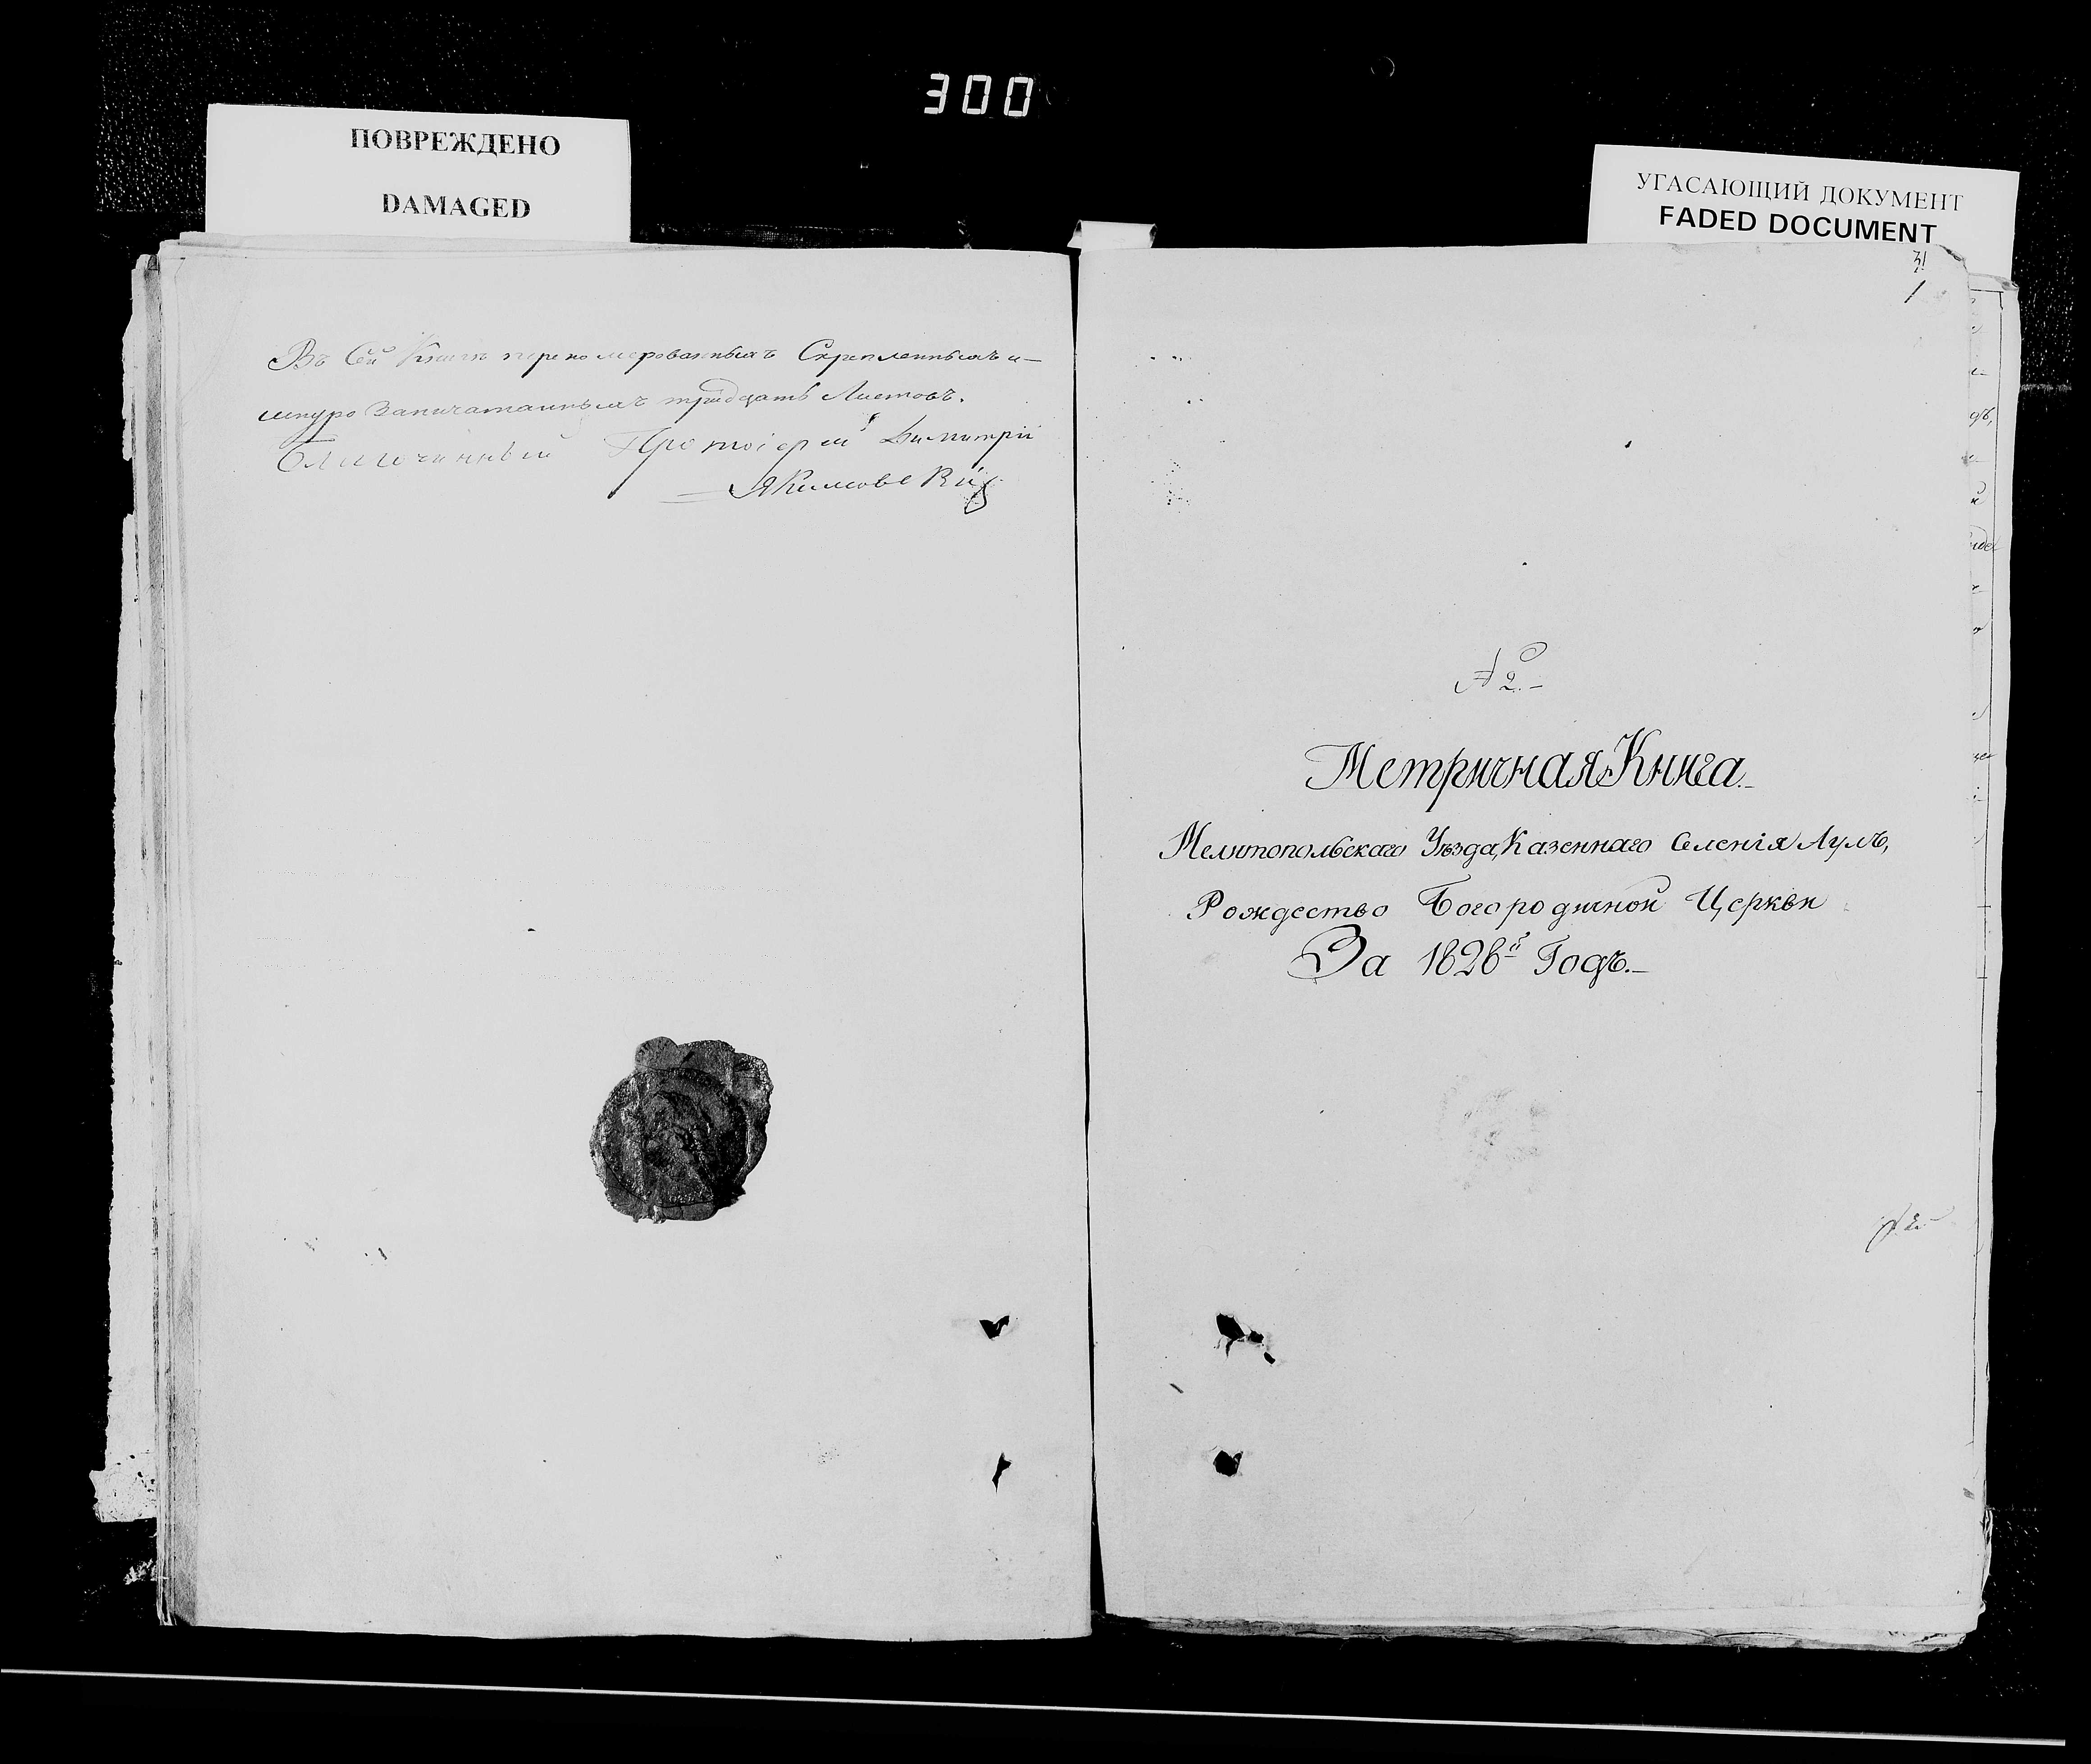 300
ПОВРЕЖДЕНО
DAMAGED
УГАСАЮЩИЙ ДОКУМЕНТ
FADED DOCUMENT
Въ Сей Книгѣ перено мерованныхъ Скрепленныхъ и
шнуро Запичатанныхъ тридцать Листовъ.
Благочинный Протоіерей Димитрій
Якимовскій
31
1
№ 2.
Метричная Книга.
Мелитопольскаго Уѣзда, Казеннаго Селенія Аулъ,
Рождество Богородичной Церкви
За 1828й Годъ.